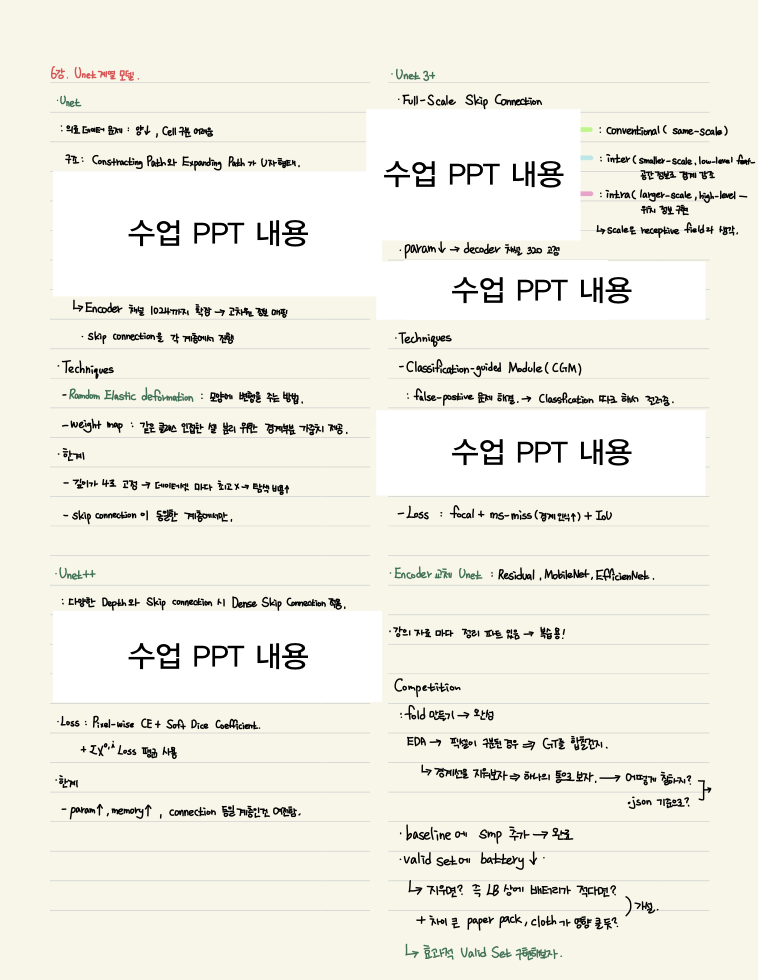 6강. Unet 계열 모델.
· Unet
: 의료 데이터 문제 : 양↓, Cell 구분 어려움
구조 : Constracting Path와 Expanding Path가 U자형태.
수업 PPT 내용
↳ Encoder 채널 1024까지 확장 → 고차원 정보 매핑
· Skip connection을 각 계층에서 진행
· Techniques
- Random Elastic deformation : 모양에 변형을 주는 방법.
- Weight map : 같은 클래스 인접한 셀 분리 위한 경계부분 가중치 제공.
· 한계
- 깊이가 4로 고정 → 데이터셋 마다 최고 X → 탐색 비용↑
- skip connection이 동일한 계층에서만.
· Unet++
: 다양한 Depth와 Skip connection 시 Dense Skip Connection 적용.
수업 PPT 내용
· Loss : Pixel-wise CE + Soft Dice Coefficient.
+ ΣX⁰,ⁱ Loss 평균 사용
· 한계
- param↑, memory↑, connection 동일 계층인건 여전함.
· Unet 3+
· Full-Scale Skip Connection
수업 PPT 내용
: conventional ( same-scale)
: inter (smaller-scale, low-level feat-
공간 정보로 경계 강조
: intra( larger-scale, high-level —
위치 정보 구현
↳ scale은 receptive field라 생각.
· param↓ → decoder 채널 320 고정
수업 PPT 내용
· Techniques
- Classification-guided Module ( CGM)
: false-postive 문제 해결. → Classfication 따로 해서 전져줌.
수업 PPT 내용
- Loss : focal + ms-miss (경계 인식↑) + IoU
· Encoder 교체 Unet : Residual, MobileNet, EfficienNet.
· 강의 자료 마다 정리 파트 있음 → 복습용!
Competition
: fold 만들기 → 완성
EDA → 픽셀이 구분된 경우 ⇒ GT를 합칠건지.
↳ 경계선을 지워보자 ⇒ 하나의 통으로 보자. → 어떻게 칠하지?
.json 기준으로?
· baseline에 smp 추가 → 완료
· valid set에 battery ↓
↳ 지우면? 즉 LB 상에 배터리가 적다면?
+ 차이 큰 paper pack, cloth가 영향 클듯?
) 가설.
↳ 효과적 Valid Set 구현해보자.